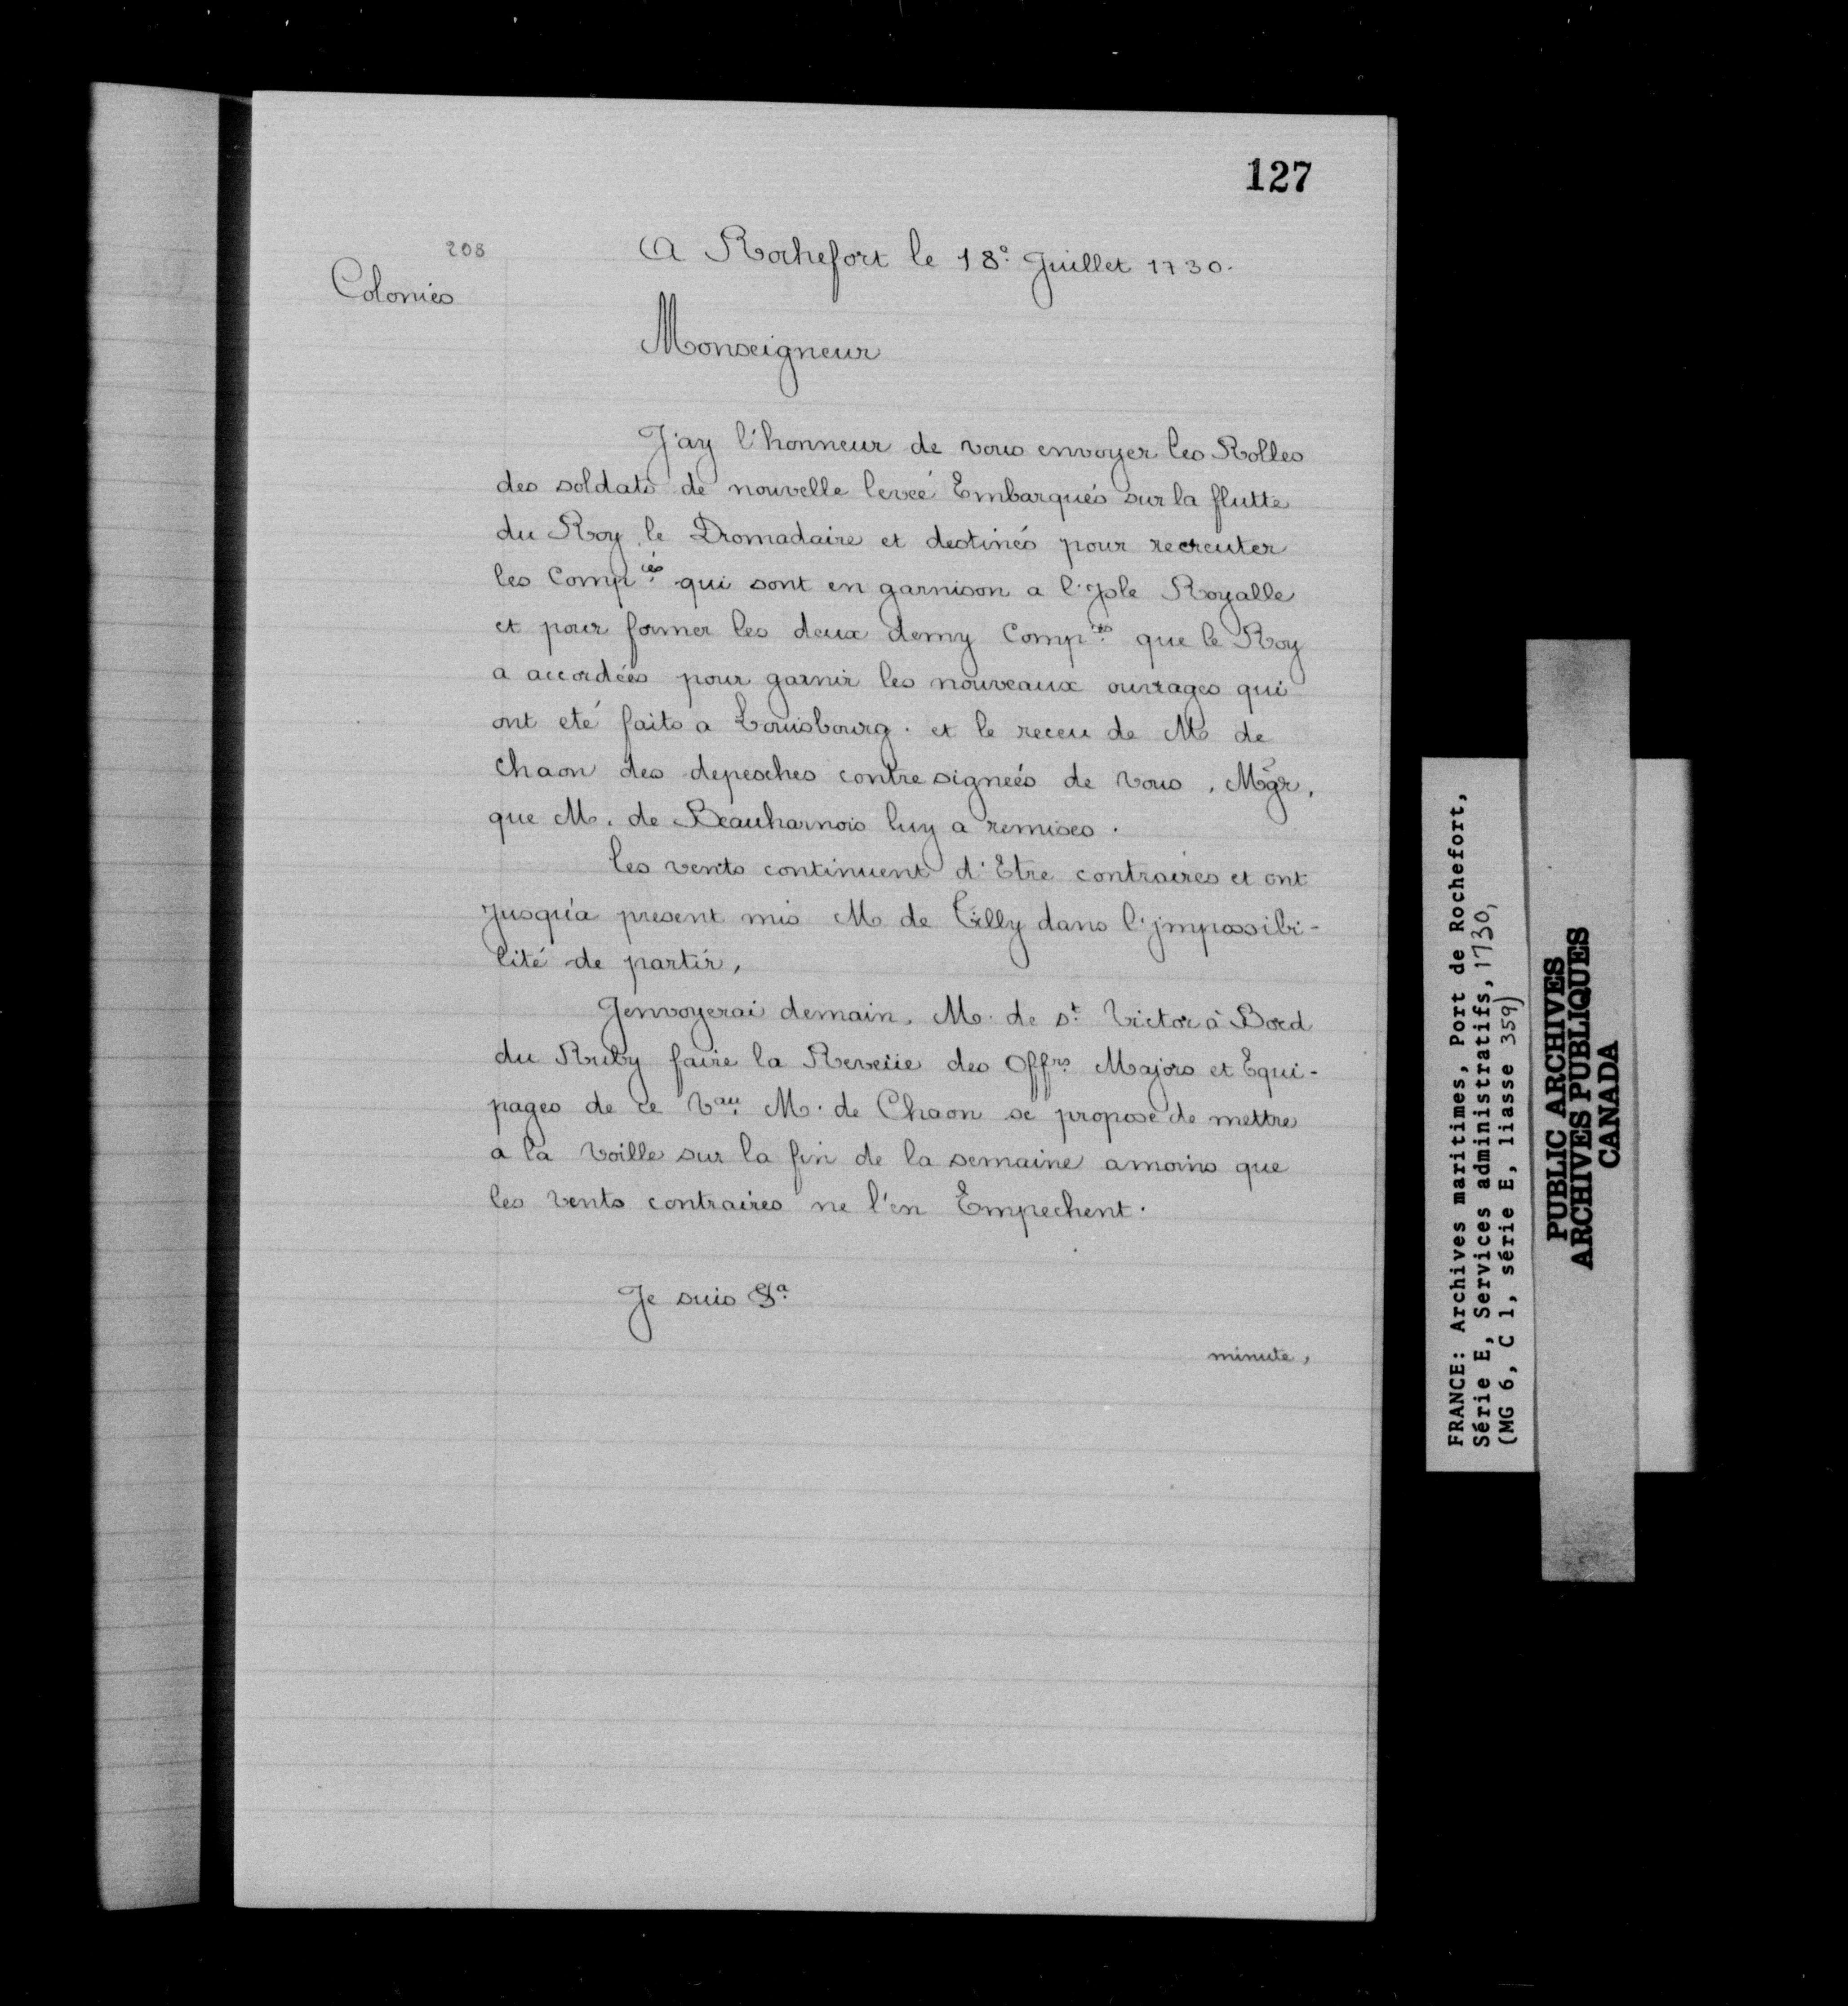 127
208
A Rochefort le 18e Juillet 1730.
Colonies
Monseigneur
J'ay l'honneur de vous envoyer les Rolles
des soldats de nouvelle leveé Embarqués sur la flutte
du Roy le Dromadaire et destinés pour recreuter
les Compies qui sont en garnison a l'Jsle Royalle
et pour former les deux demy Compies que le Roy
a accordées pour garnir les nouveaux ouvrages qui
ont eté faits a Louisbourg. et le receu de M de
Chaon des depesches contre signeés de vous, Mgr,
que M. de Beauharnois luy a remises.
les vents continuent d'Etre contraires et ont
Jusqu'a present mis M de Tilly dans l'jmpossibi-
lité de partir,
J'envoyerai demain, M. de St Victor à Bord
du Ruby faire la Reveüe des Offrs Majors et Equi-
pages de ce Vau M. de Chaon se propose de mettre
a la Voille sur la fin de la semaine amoins que
les Vents contraires ne l'en Empechent.
Je suis &a
minute,
FRANCE: Archives maritimes, Port de Rochefort,
Série E, Services administratifs, 1730,
(MG 6, C 1, série E, liasse 359)
PUBLIC ARCHIVES
ARCHIVES PUBLIQUES
CANADA